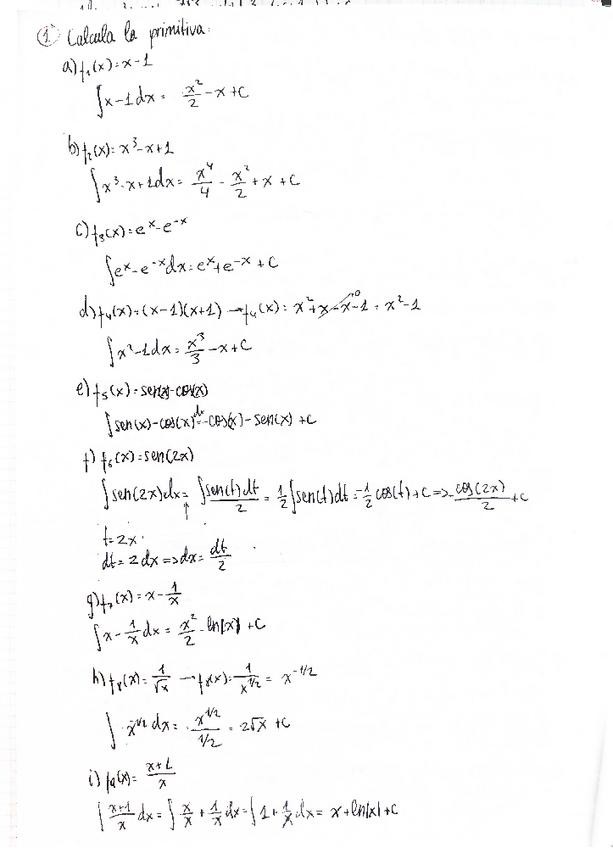 1. Calcula la primitiva:
a) f₁(x)=x-1
∫x-1dx= x²/2 -x+C
b) f₂(x)=x³-x+1
∫x³-x+1dx= x⁴/4 - x²/2 +x+C
c) f₃(x)=eˣ-e⁻ˣ
∫eˣ-e⁻ˣdx=eˣ+e⁻ˣ+C
d) f₄(x)=(x-1)(x+1)→f₄(x)= x²+x-x-1 = x²-1
∫x²-1dx= x³/3 -x+C
e) f₅(x)=sen(x)-cos(x)
∫sen(x)-cos(x)dx=-cos(x)-sen(x)+C
f) f₆(x)=sen(2x)
∫sen(2x)dx= ∫sen(t)dt/2 = 1/2∫sen(t)dt=-1/2 cos(t)+C=>-cos(2x)/2+C
t=2x
dt=2dx=>dx= dt/2
g) f₇(x)=x-1/x
∫x-1/x dx= x²/2 -ln|x|+C
h) f₈(x)=1/√x →f₈(x)=1/x^1/2= x^-1/2
∫x^1/2 dx= x^1/2/1/2 = 2√x+C
i) f₉(x)= x+1/x
∫x+1/x dx=∫x/x+1/x dx=∫1+1/x dx= x+ln|x|+C